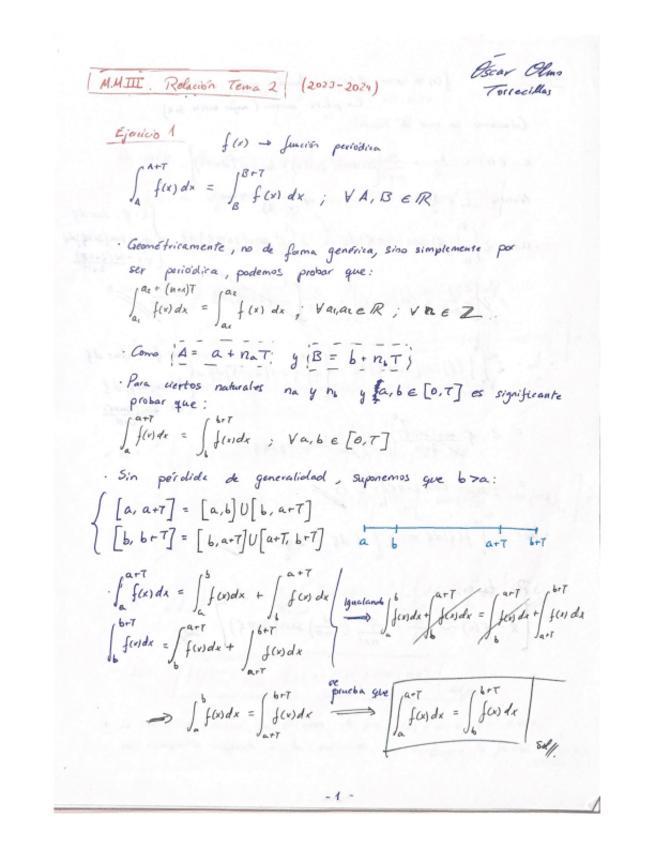 M.M.III. Relación Tema 2 (2023-2024)
Óscar Olmo
Torrecillas
Ejercicio 1
f(x) → función periódica
∫_A^{A+T} f(x) dx = ∫_B^{B+T} f(x) dx ; ∀ A, B ∈ ℝ
· Geométricamente, no de forma genérica, sino simplemente por
ser periódica, podemos probar que:
∫_{a₁}^{a₂+(n+1)T} f(x) dx = ∫_{a₁}^{a₂} f(x) dx ; ∀ a₁,a₂ ∈ ℝ ; ∀ n ∈ ℤ
· Como A = a + n_a T; y B = b + n_b T;
· Para ciertos naturales n_a y n_b y a, b ∈ [0,T] es significante
probar que:
∫_a^{a+T} f(x)dx = ∫_b^{b+T} f(x)dx ; ∀ a, b ∈ [0,T]
· Sin pérdida de generalidad, suponemos que b>a:
{ [a, a+T] = [a,b] ∪ [b, a+T]
[b, b+T] = [b, a+T] ∪ [a+T, b+T]
a b a+T b+T
· ∫_a^{a+T} f(x)dx = ∫_a^b f(x)dx + ∫_b^{a+T} f(x) dx
∫_b^{b+T} f(x)dx = ∫_b^{a+T} f(x)dx + ∫_{a+T}^{b+T} f(x)dx
Igualando → ∫_a^b f(x)dx + ∫_b^{a+T} f(x)dx = ∫_b^{a+T} f(x)dx + ∫_{a+T}^{b+T} f(x) dx
⇒ ∫_a^b f(x)dx = ∫_{a+T}^{b+T} f(x)dx se prueba que ⇒ ∫_a^{a+T} f(x)dx = ∫_b^{b+T} f(x)dx
Sol//.
- 1 -